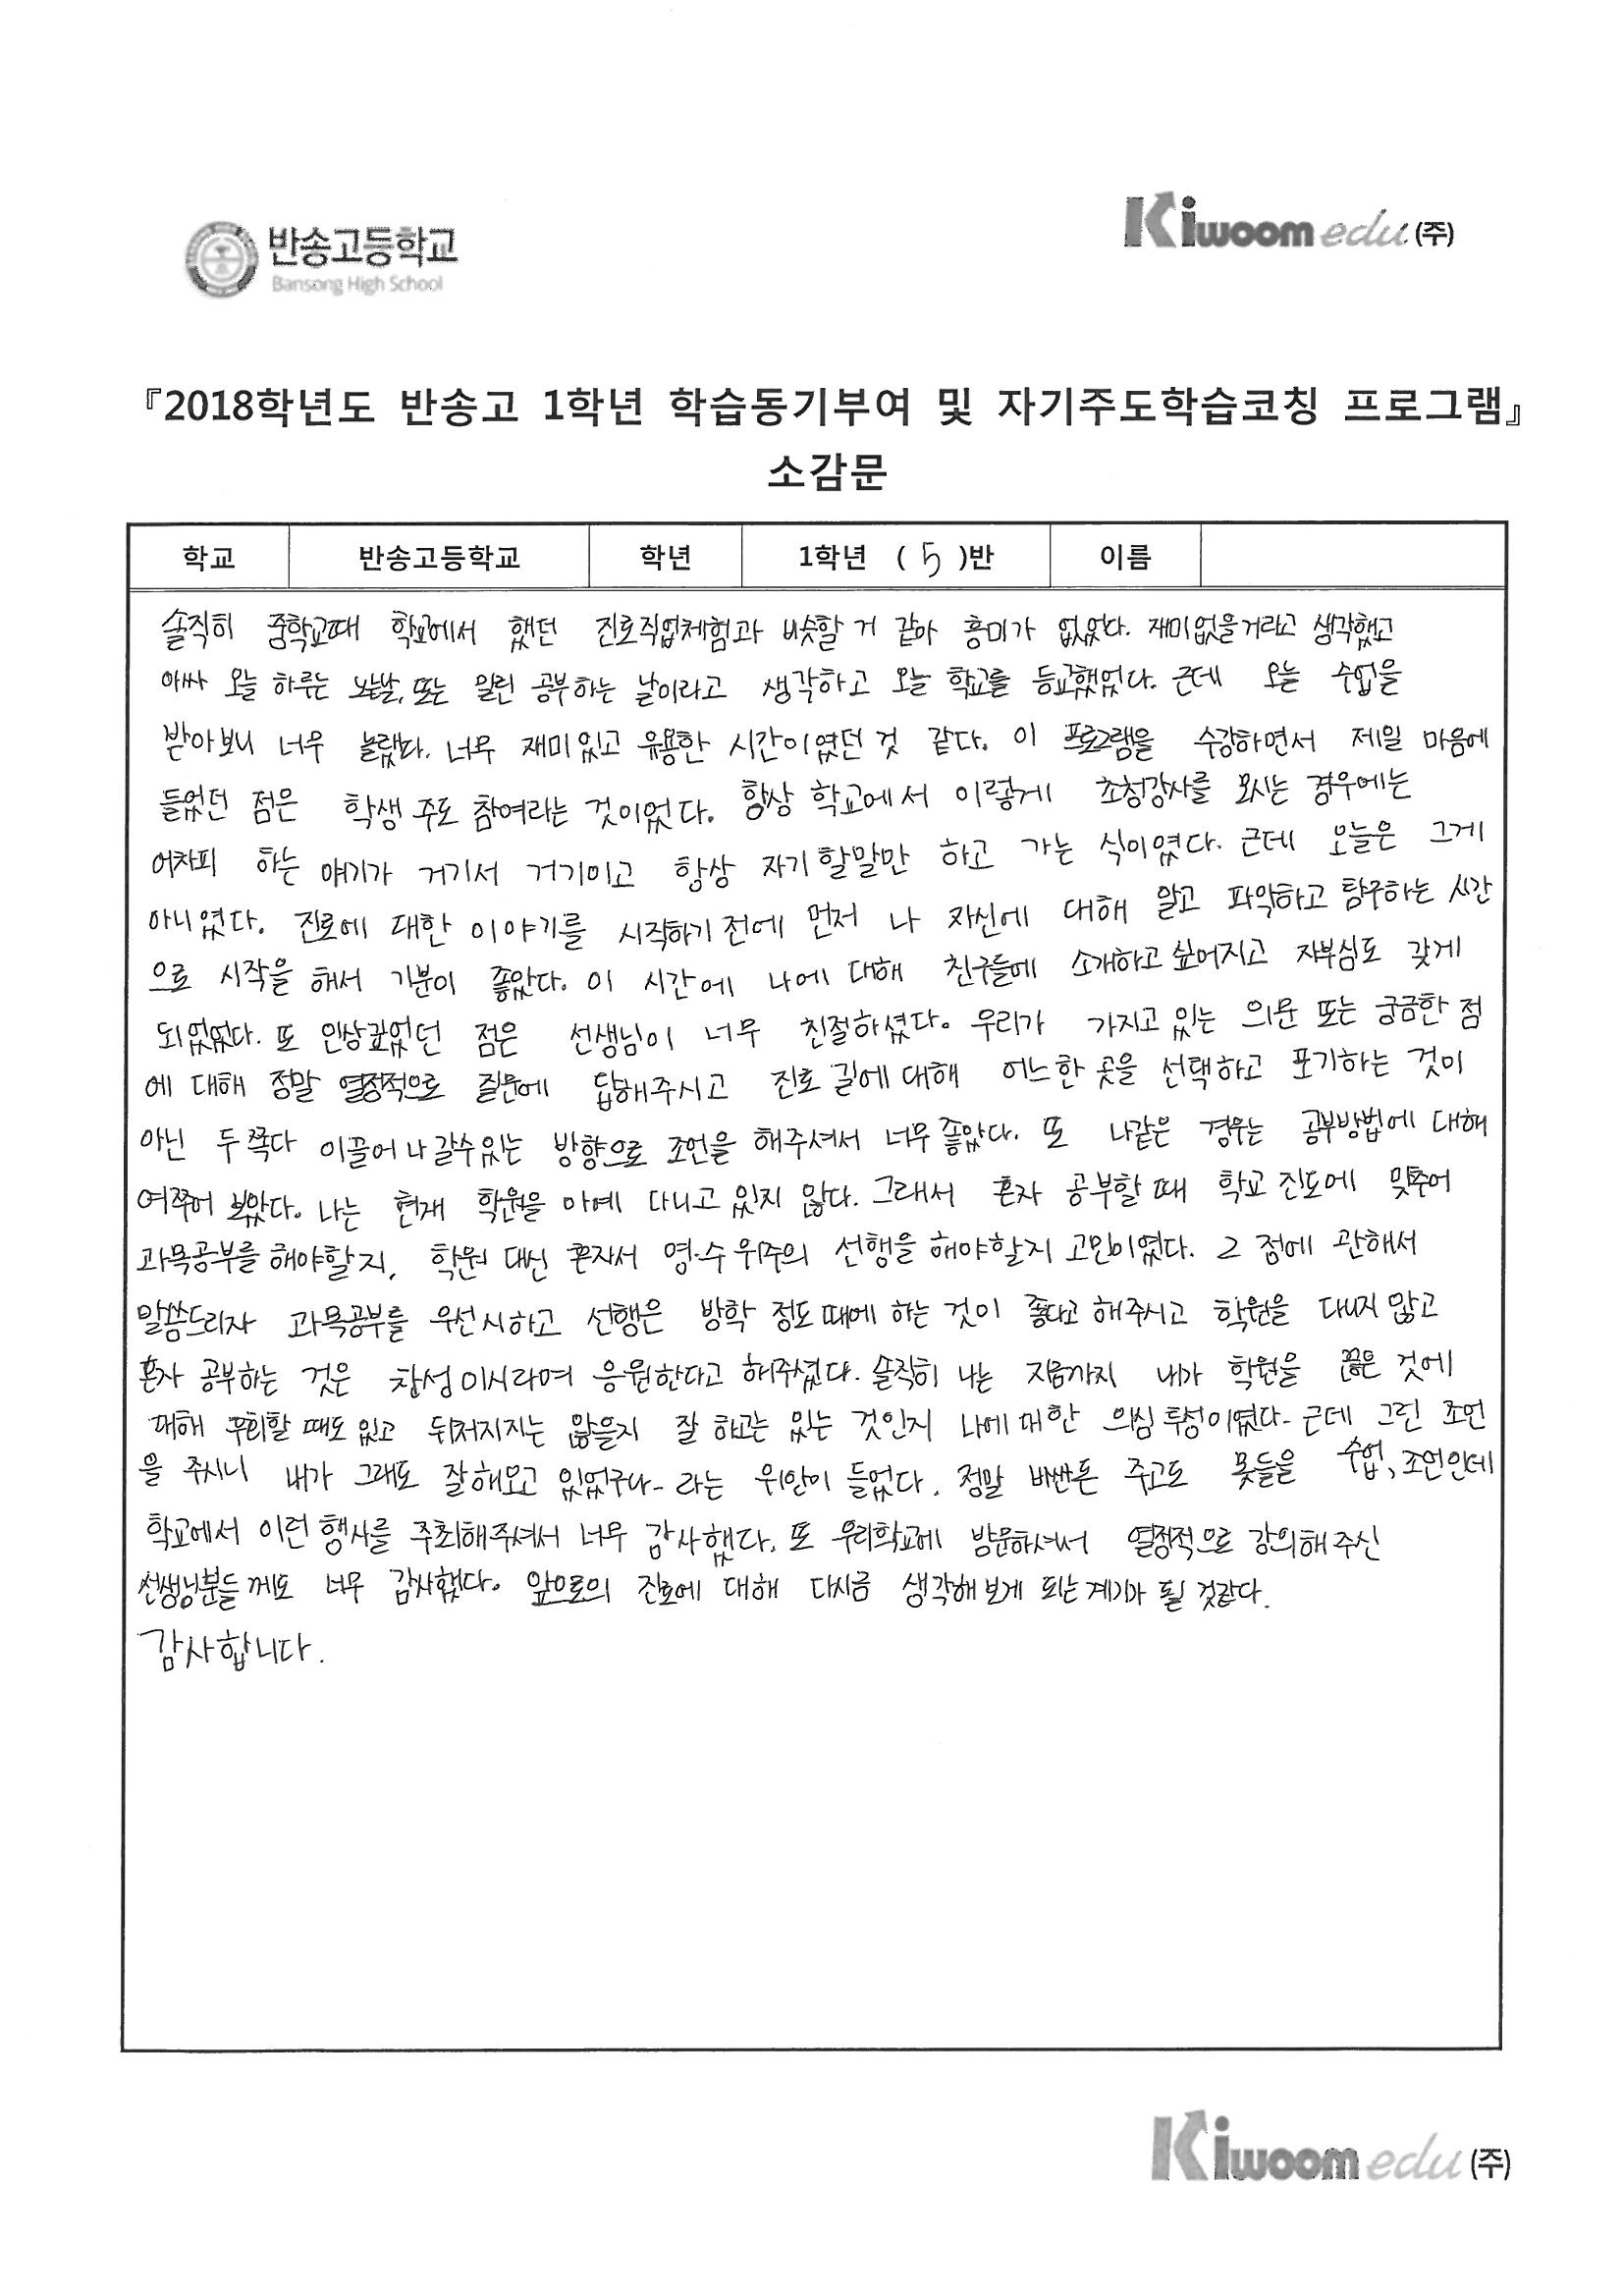 반송고등학교
Bansong High School
Kiwoom edu (주)
『2018학년도 반송고 1학년 학습동기부여 및 자기주도학습코칭 프로그램』
소감문
학교 반송고등학교 학년 1학년 ( 5 )반 이름
솔직히 중학교때 학교에서 했던 진로직업체험과 비슷할 거 같아 흥미가 없었다. 재미없을거라고 생각했고
아싸 오늘 하루는 노는날, 또는 밀린 공부하는 날이라고 생각하고 오늘 학교를 등교했었다. 근데 오늘 수업을
받아보니 너무 놀랬다. 너무 재미있고 유용한 시간이였던 것 같다. 이 프로그램을 수강하면서 제일 마음에
들었던 점은 학생 주도 참여라는 것이었다. 항상 학교에서 이렇게 초청강사를 모시는 경우에는
어차피 하는 얘기가 거기서 거기이고 항상 자기 할말만 하고 가는 식이였다. 근데 오늘은 그게
아니였다. 진로에 대한 이야기를 시작하기 전에 먼저 나 자신에 대해 알고 파악하고 탐구하는 시간
으로 시작을 해서 기분이 좋았다. 이 시간에 나에 대해 친구들에 소개하고 싶어지고 자부심도 갖게
되었었다. 또 인상깊었던 점은 선생님이 너무 친절하셨다. 우리가 가지고 있는 의문 또는 궁금한 점
에 대해 정말 열정적으로 질문에 답해주시고 진로 길에 대해 어느한 곳을 선택하고 포기하는 것이
아닌 두 쪽다 이끌어 나갈수있는 방향으로 조언을 해주셔서 너무 좋았다. 또 나같은 경우는 공부방법에 대해
여쭈어 보았다. 나는 현재 학원을 아예 다니고 있지 않다. 그래서 혼자 공부할 때 학교 진도에 맞추어
과목공부를 해야할지, 학원 대신 혼자서 영·수 위주의 선행을 해야할지 고민이였다. 그 점에 관해서
말씀드리자 과목공부를 우선시하고 선행은 방학 정도 때에 하는 것이 좋다고 해주시고 학원을 다니지 않고
혼자 공부하는 것은 참성이시라며 응원한다고 해주셨다. 솔직히 나는 지금까지 내가 학원을 끊은 것에
대해 후회할 때도 있고 뒤처지지는 않을지 잘 하고는 있는 것인지 나에 대한 의심 투성이였다- 근데 그런 조언
을 주시니 내가 그래도 잘해오고 있었구나- 라는 위안이 들었다. 정말 비싼돈 주고도 못들을 수업, 조언인데
학교에서 이런 행사를 주최해주셔서 너무 감사했다. 또 우리학교에 방문하셔서 열정적으로 강의해주신
선생님분들께도 너무 감사했다. 앞으로의 진로에 대해 다시금 생각해보게 되는 계기가 될 것같다.
감사합니다.
Kiwoom edu (주)